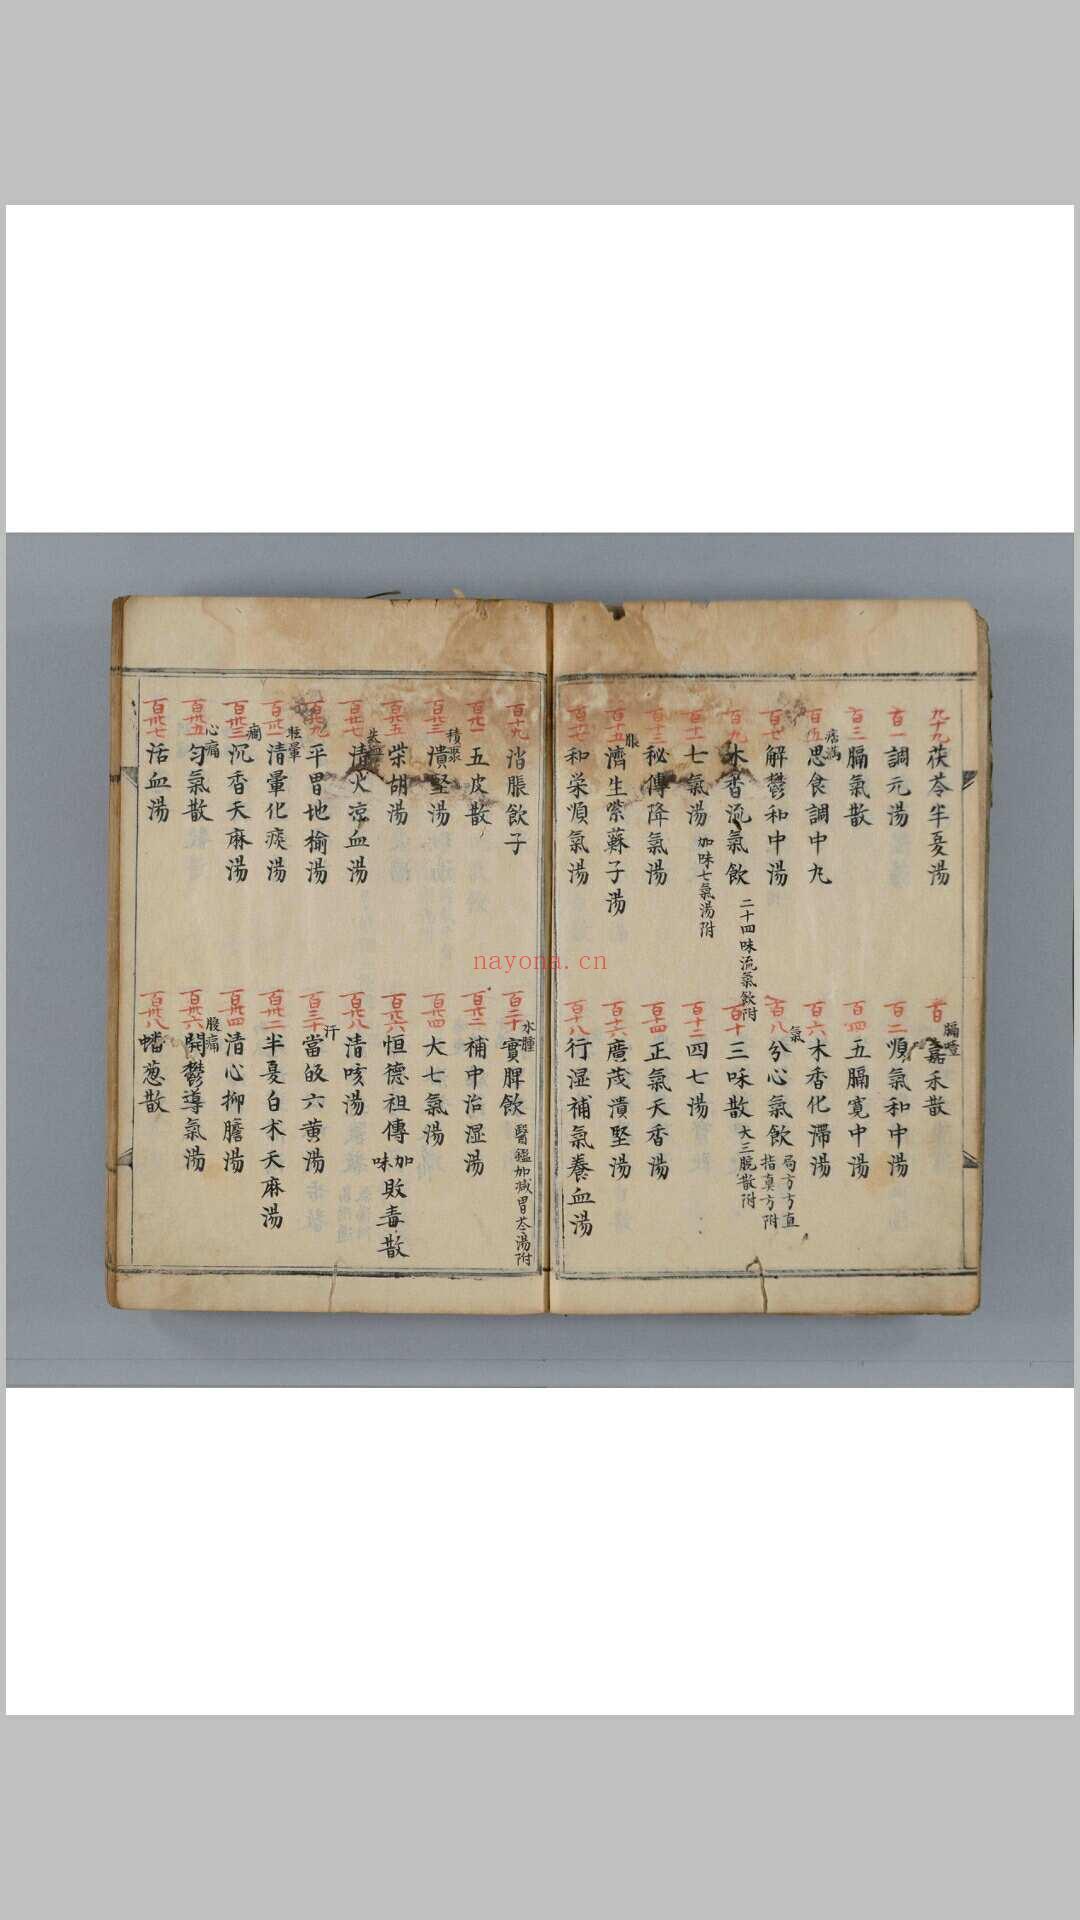 九十九 茯苓半夏湯
膈噎
百 嘉禾散
百一 調元湯
百二 順氣和中湯
百三 膈氣散
百四 五膈寬中湯
痞滿
百五 思食調中丸
百六 木香化滯湯
百七 解鬱和中湯
氣
百八 分心氣飲 局方方直指真方附
百九 木香流氣飲 二十四味流氣飲附
百十 三味散 大三脘散附
百十一 七氣湯 加味七氣湯附
百十二 四七湯
百十三 秘傳降氣湯
百十四 正氣天香湯
脹
百十五 濟生紫蘇子湯
百十六 廣茂潰堅湯
百十七 和栄順氣湯
百十八 行湿補氣養血湯
百十九 消脹飲子
水腫
百二十 實脾飲 醫鑑加减胃苓湯附
百廿一 五皮散
百廿二 補中治湿湯
積聚
百廿三 潰堅湯
百廿四 大七氣湯
百廿五 柴胡湯
百廿六 恒德祖傳加味敗毒散
百廿七 清火涼血湯
百廿八 清咳湯
百廿九 平胃地榆湯
汗
百三十 當皈六黄湯
眩暈
百卅一 清暈化痰湯
百卅二 半夏白术天麻湯
癎
百卅三 沉香天麻湯
百卅四 清心抑膽湯
心痛
百卅五 匀氣散
腹痛
百卅六 開鬱導氣湯
百卅七 活血湯
百卅八 蟠葱散
nayona.cn